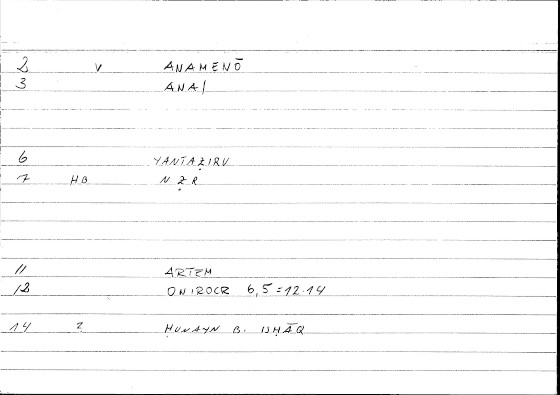 2 V ANAMENŌ
3 ANA/
6 YANTAẒIRU
7 HB NẒR
11 ARTEM
12 ONIROCR 6,5 = 12.14
14 ? ḤUNAYN B. ISḤĀQ